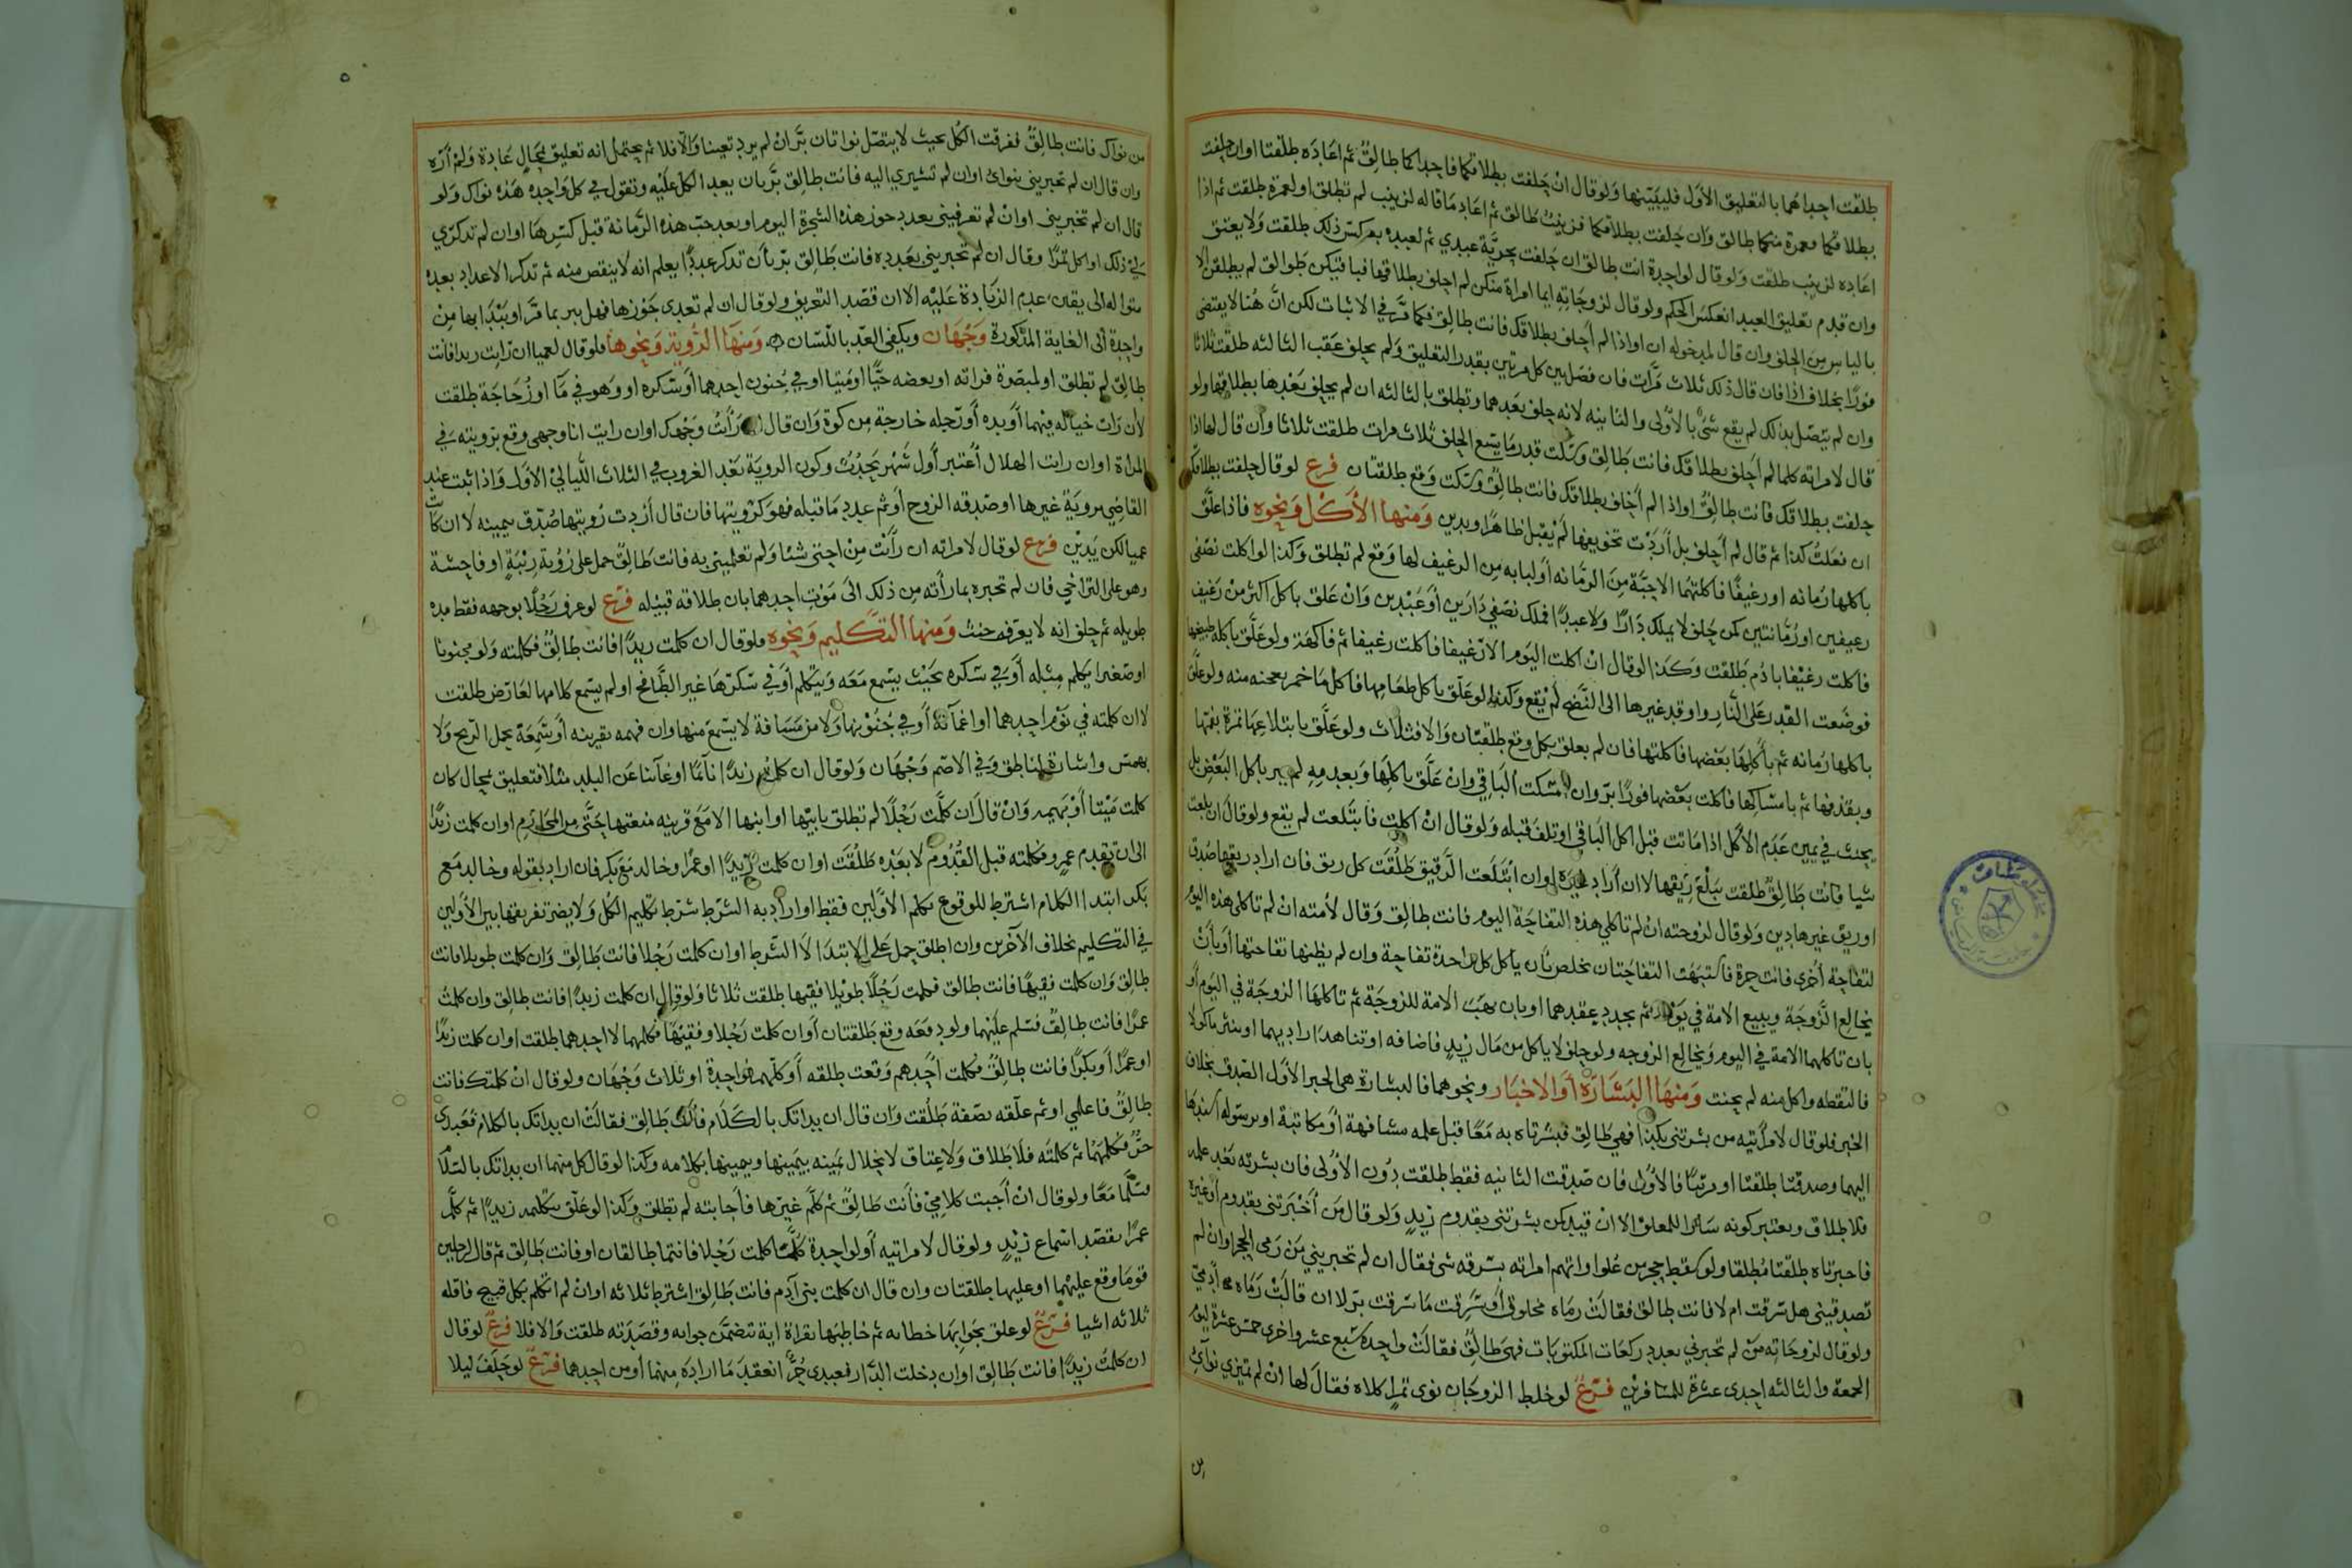 طلقت احداهما بالتعليق الأول فليبينها ولو قال ان حلفت بطلاقكما فاحداكما طالق ثم اعاده طلقتا او ان حلفت
بطلاقكما فعمرة منكما طالق وان حلفت بطلاقكما فزينب طالق ثم اعاد ما قاله لزينب لم تطلق او لعمرة طلقت ثم اذا
اعاده لزينب طلقت ولو قال لواحدة انت طالق ان حلفت بحرية عبدي ثم لعبده بعكس ذلك طلقت ولا يعتق
وان قدم تعليق العبد انعكس الحكم ولو قال لزوجاته ايما امراة منكن لم احلف بطلاقها فباقيتكن طوالق لم يطلقن الا
بالياس من الحلف وان قال لمدخوله ان او اذا لم احلف بطلاقك فانت طالق فكما مر في الاثبات لكن ان هنا لا يقتضي
فورا بخلاف اذا فان قال ذلك ثلاث مرات فان فصل بين كل مرتين بقدر التعليق ولم يحلف عقب الثالثه طلقت ثلاثا
وان لم يتصل بذلك لم يقع شئ بالاولى والثانيه لانه حلف بعدهما وتطلق بالثالثه ان لم يحلف بعدها بطلاقها ولو
قال لامراته كلما لم احلف بطلاقك فانت طالق وسكت قدر ما يسع الحلف ثلاث مرات طلقت ثلاثا وان قال لها اذا
حلفت بطلاقك فانت طالق او اذا لم احلف بطلاقك فانت طالق وسكت وقع طلقتان فرع لو قال حلفت بطلاقك
ان فعلت كذا ثم قال لم احلف بل اردت تخويفها لم يقبل ظاهرا ويدين ومنها الأكل ونحوه فاذا علق
باكلها رمانه او رغيفا فاكلتهما الا حبة من الرمانه او لبابه من الرغيف لها وقع لم تطلق وكذا لو اكلت نصفي
رغيفين او رمانتين كمن حلف لا يملك دارا ولا عبدا فملك نصفي دارين او عبدين وان علق باكل اكثر من رغيف
فاكلت رغيفا بادم طلقت وكذا لو قال ان اكلت اليوم الا رغيفا فاكلت رغيفا ثم فاكهة ولو علق باكله طبيخها
فوضعت القدر على النار واوقد غيرها الى النضج لم يقع وكذا لو علق باكل طعامها فاكل ما خمر بعجنه منه ولو علق
باكلها رمانه ثم باكلها بعضها فاكلتها فان لم يعلق بكل وقع طلقتان والا فثلاث ولو علق بابتلاعها تمرة بفمها
وبقذفها ثم بامساكها فاكلت بعضها فورا بر وان امسكت الباقي وان علق باكلها وبعدمه لم يبر باكل البعض بل
يحنث في يمين عدم الأكل اذا ماتت قبل اكل الباقي او تلف قبله ولو قال ان اكلت فابتلعت لم يقع ولو قال ان بلعت
شيا فانت طالق طلقت ببلع ريقها لا ان اراد غيره او ان ابتلعت الريق طلقت كل ريق فان اراد ريقها صدق
او ريق غيرها دين ولو قال لزوجته ان لم تاكلي هذه التفاحة اليوم فانت طالق وقال لأمته ان لم تاكلي هذه اليوم
لتفاحة أخرى فانت حرة فاشتبهت التفاحتان تخلص بان ياكل كل واحدة تفاحة وان لم يظنها تفاحتها او بان
يخالع الزوجة ويبيع الامة في يومه ثم يجدد عقدهما او بان يهب الامة للزوجة ثم تاكلها الزوجة في اليوم او
بان تاكلهما الامة في اليوم ويخالع الزوجه ولو حلف لا ياكل من مال زيد فاضافه او تناهدا راد يهما او نثر ماكولا
فالتقطه واكل منه لم يحنث ومنها البشارة أو الاخبار ونحوهما فالبشارة هي الخبر الأول الصدق بخلاف
الخبر فلو قال لامرأتيه من بشرتني بكذا فهي طالق فبشرتاه به معا قبل علمه مشافهة أو مكاتبة او برسوله اسنداها
اليهما وصدقتا طلقتا او مرتبا فالأولى فان صدقت الثانيه فقط طلقت دون الأولى فان بشرته بعد علمه
فلا طلاق ويعتبر كونه سارا للمعلق الا ان قيد كمن بشرتني بقدوم زيد ولو قال من أخبرتني بقدوم او غيره
فاخبرتاه طلقتا مطلقا ولو سقط حجر من علو او اتهم امراته بسرقه شئ فقال ان لم تخبريني من رمى الحجر او ان لم
تصدقيني هل سرقت ام لا فانت طالق فقالت رماه مخلوق أو سرقت ما سرقت بر لا ان قالت رماه ادمي
ولو قال لزوجاته من لم تخبرني بعدد ركعات المكتوبات فهي طالق فقالت واحدة سبع عشر واخرى خمس عشرة ليوم
الجمعة والثالثه احدى عشرة للمسافرين فرع لو خلط الزوجان نوى تمر اكلاه فقال لها ان لم تميزي نواي
من
من نواك فانت طالق ففرقت الكل بحيث لا يتصل نواتان بر ان لم يرد تعيينا والا فلا ثم يحتمل انه تعليق بمحال عادة ولم أره
وان قال ان لم تخبريني بنواي او ان لم تشيري اليه فانت طالق بر بان يعد الكل عليه وتقول في كل واحده هذه نواك ولو
قال ان لم تخبريني او ان لم تعرفيني بعدد جوز هذه الشجرة اليوم او بعدد حب هذه الرمانة قبل كسرها او ان لم تذكري
لي ذلك او اكل تمرا وقال ان لم تخبريني بعدده فانت طالق بر بأن تذكر عددا يعلم انه لا ينقص منه ثم تذكر الاعداد بعده
متواله الى يقين عدم الزيادة عليه الا ان قصد التعريف ولو قال ان لم تعدي جوزها فهل يبر بما مر او بيبدا بها من
واحدة الى الغاية المذكورة وجهان ويكفي العد باللسان ومنها الرؤية ونحوها فلو قال لعميا ان رايت زيدا فانت
طالق لم تطلق او لمبصرة فراته او بعضه حيا او ميتا او في جنون احدهما أو سكره او وهو في ما او زجاجة طلقت
لأن رات خياله فيهما أو يده أو رجله خارجة من كوة وان قال رأت وجهك او ان رايت انا وجهي وقع برويته في
المراة او ان رات الهلال أعتبر أول شهر يحدث وكون الروية بعد الغروب في الثلاث الليالي الأول واذا ثبت عند
القاضي بروية غيرها او صدقه الزوج أو تم عدد ما قبله فهو كرؤيتها فان قال أردت رؤيتها صدق بيمينه لا ان كانت
عميا لكن يدين فرع لو قال لامراته ان رأيت من اختي شئا ولم تعلميني به فانت طالق حمل على رؤية ريبة او فاحشة
وهو على التراخي فان لم تخبره بما رأته من ذلك الى موت احدهما بان طلاقه قبيله فرع لو عرف رجلا بوجهه فقط مده
طويله ثم حلف انه لا يعرفه حنث ومنها التكليم ونحوه فلو قال ان كلمت زيدا فانت طالق فكلمته ولو مجنونا
او صغيرا يكلم مثله أو في سكره بحيث يسمع معه ويتكلم أو في سكرها غير الطافح او لم يسمع كلامها لعارض طلقت
لا ان كلمته في نوم احدهما او اغمائه أو في جنونها ولا من مسافة لا يسمع منها وان فهمه بقرينه أو سمعه بحمل الريح ولا
بهمس واشارة لناطق وفي الاصم وجهان ولو قال ان كلمت زيدا نائما او غائبا عن البلد مثلا فتعليق بمحال كان
كلمت ميتا أو بهيمه وان قال ان كلمت رجلا لم تطلق بابيها او ابنها الا مع قرينه منعتها حتى من المحارم او ان كلمت زيدا
الى ان يقدم عمرو فكلمته قبل القدوم لا بعده طلقت او ان كلمت زيدا او عمرا وخالد مع بكر فان اراد بقوله وخالد مع
بكر ابتدا الكلام اشترط للوقوع تكلم الأولين فقط او اراد به الشرط شرط تكليم الكل ولا يضر تفريقها بين الأولين
في التكليم بخلاف الآخرين وان اطلق حمل على الابتدا لا الشرط او ان كلمت رجلا فانت طالق وان كلمت طويلا فانت
طالق وان كلمت فقيها فانت طالق فكلمت رجلا طويلا فقيها طلقت ثلاثا ولو قال ان كلمت زيدا فانت طالق وان كلمت
عمرا فانت طالق فسلم عليهما ولو دفعه وقع طلقتان أو ان كلمت رجلا وفقيها فكلهما لا احدهما طلقت او ان كلمت زيدا
او عمرا أو بكرا فانت طالق فكلمت أحدهم وقعت طلقه أو كلهم فواحدة او ثلاث وجهان ولو قال ان كلمتك فانت
طالق فاعلمي او ثم علقه بصفة طلقت وان قال ان بداتك بالكلام فأنت طالق فقالت ان بداتك بالكلام فعبدي
حر فكلمها ثم كلمته فلا طلاق ولا عتاق لانحلال يمينه بيمينها ويمينها بكلامه وكذا لو قال كل منهما ان بداتك بالسلام
فسلما معا ولو قال ان أجبت كلامي فانت طالق ثم كلم غيرها فأجابته لم تطلق وكذا لو علق بتكليمه زيدا ثم كلم
عمرا بقصد اسماع زيد ولو قال لامراتيه أو لواحدة كلما كلمت رجلا فانتما طالقان او فانت طالق ثم قال لرجلين
قوما وقع عليهما او عليها طلقتان وان قال ان كلمت بني آدم فانت طالق اشترط ثلاثه او ان لم اتكلم بكل قبيح فاقله
ثلاثه اشيا فرع لو علق بجوابها خطابه ثم خاطبها بقراة اية تتضمن جوابه وقصدته طلقت والا فلا فرع لو قال
ان كلمت زيدا فانت طالق او ان دخلت الدار فعبدي حر انعقد ما اراده منهما أو من احدهما فرع لو حلف ليلا